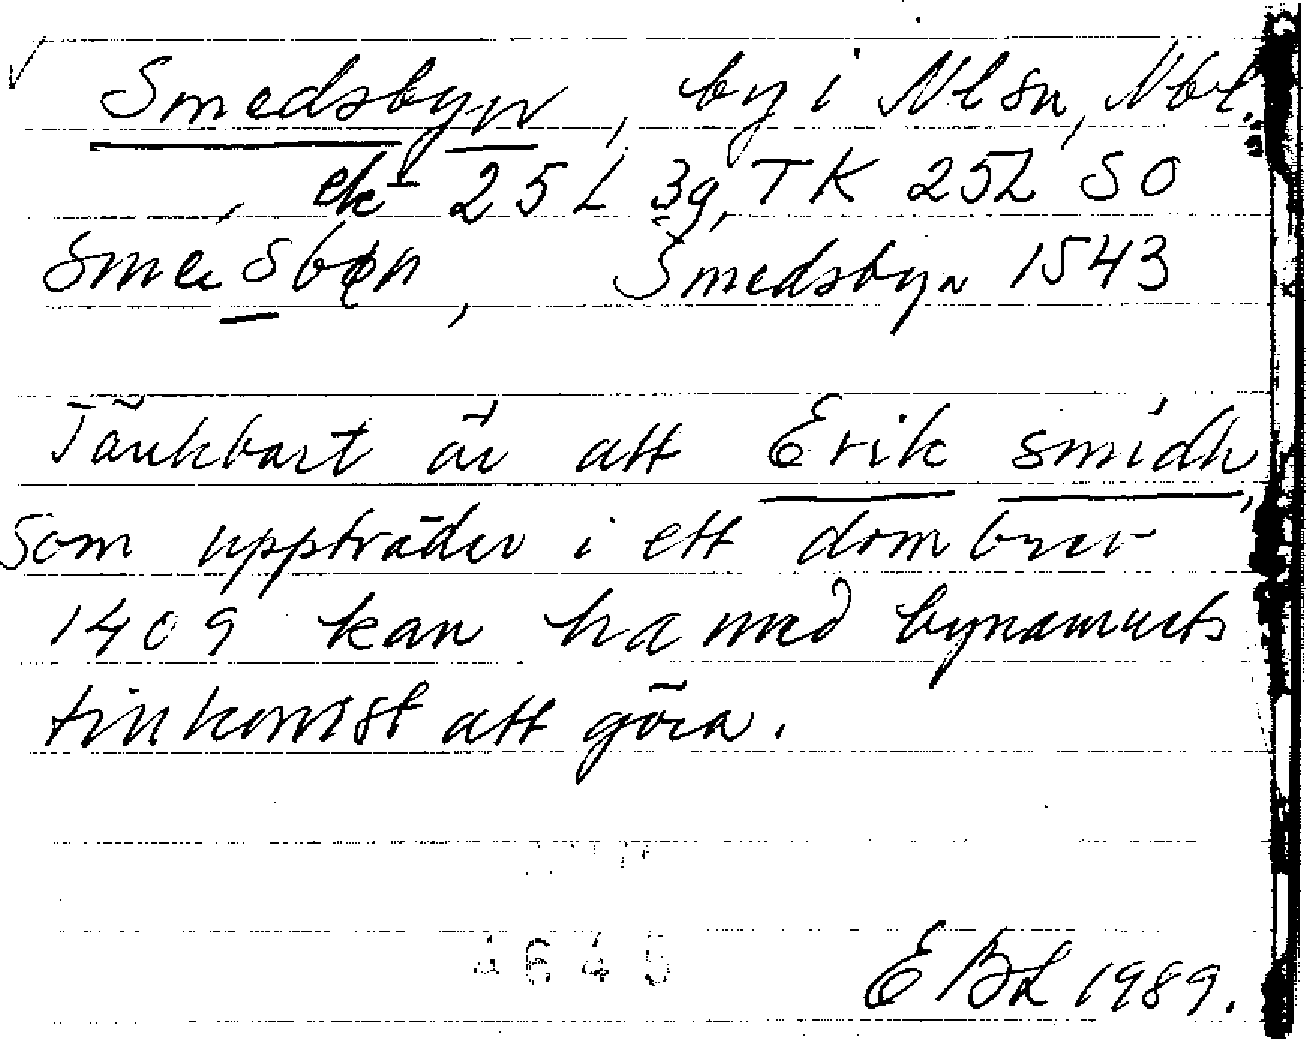 Smedsbyn, by i Nlsn, Nbt.
, ek 25 L 3g, TK 25L SO
Smedsbyn 1543
Tänkbart är att Erik smidh,
som uppträder i ett dombrev
1409 kan ha med bynamnets
tillkomst att göra.
4645
EBL 1989.